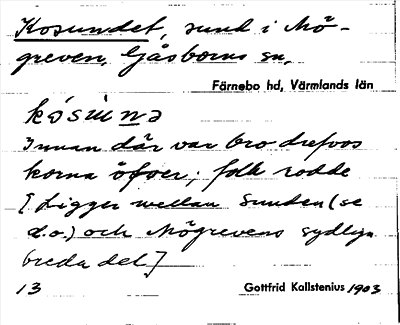 Kosundet, sund i Mö-
greven, Gåsborns sn,
Färnebo hd, Värmlands län
kósùnə
Innan där var bro drefvos
korna öfver; folk rodde
[Ligger mellan Sunden (se
d.o.) och Mögrevens sydliga
breda del]
13 Gottfrid Kallstenius 1903